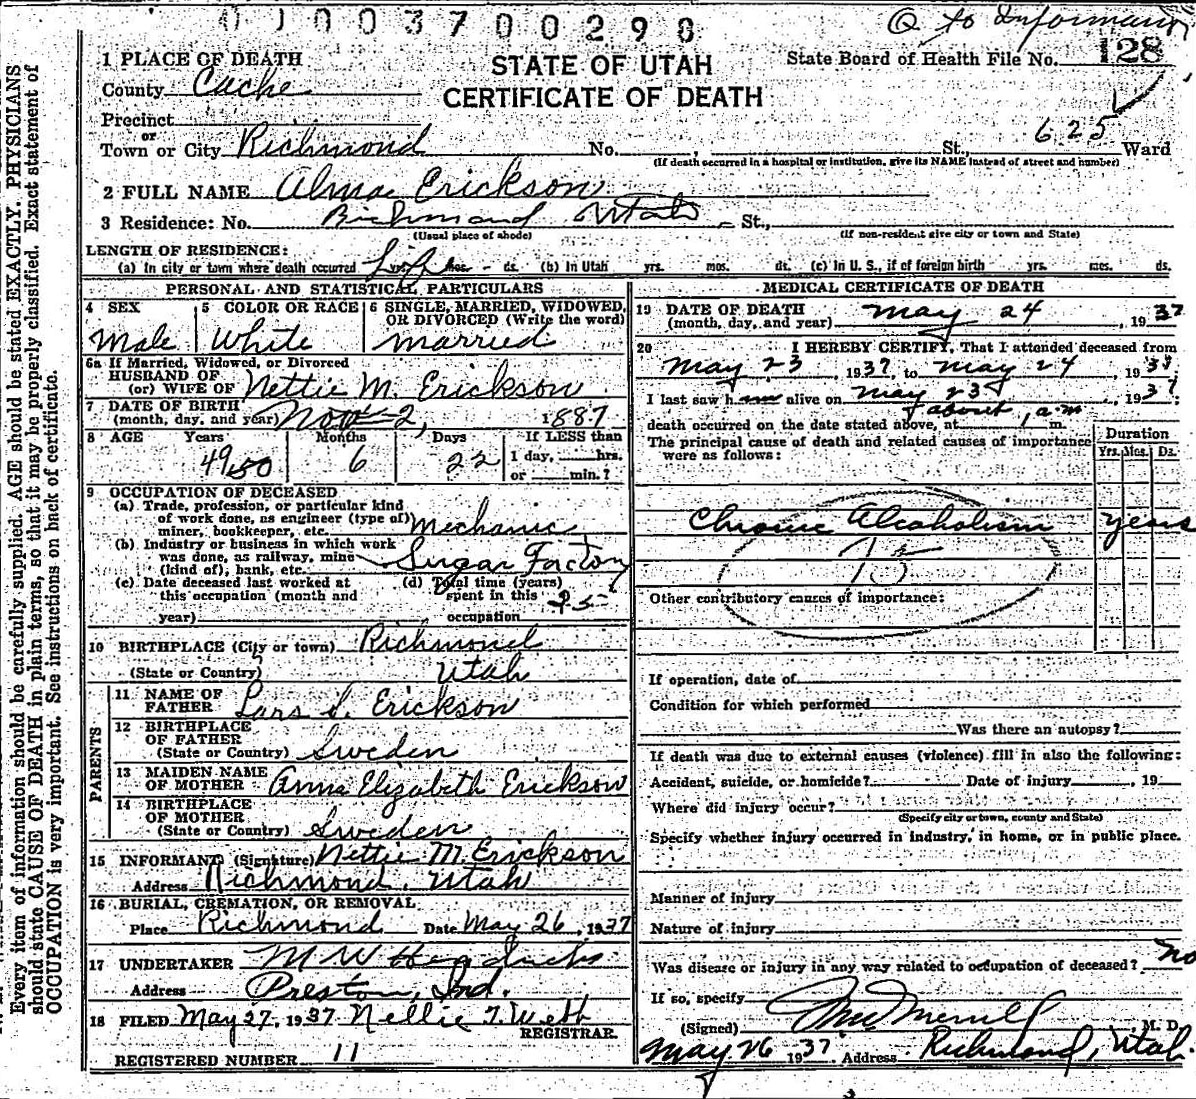 01003700290
Q to Informant
1 PLACE OF DEATH
STATE OF UTAH
State Board of Health File No. 128
County Cache
CERTIFICATE OF DEATH
Precinct
or
Town or City Richmond No. , St., 625 Ward
(If death occurred in a hospital or institution, give its NAME instead of street and number)
2 FULL NAME Alma Erickson
3 Residence: No. Richmond Utah St.,
(Usual place of abode) (If non-resident give city or town and State)
LENGTH OF RESIDENCE:
(a) In city or town where death occurred Life yrs. mos. - ds. (b) In Utah yrs. mos. ds. (c) In U. S., if of foreign birth yrs. mos. ds.
PERSONAL AND STATISTICAL PARTICULARS
4 SEX 5 COLOR OR RACE 6 SINGLE, MARRIED, WIDOWED, OR DIVORCED (Write the word)
Male White Married
6a If Married, Widowed, or Divorced
HUSBAND OF
(or) WIFE OF Nettie M. Erickson
7 DATE OF BIRTH
(month, day, and year) Nov 2, 1887
8 AGE Years Months Days If LESS than
49 50 6 22 1 day, hrs.
or min.?
9 OCCUPATION OF DECEASED
(a) Trade, profession, or particular kind
of work done, as engineer (type of)
miner, bookkeeper, etc. Mechanic
(b) Industry or business in which work
was done, as railway, mine
(kind of), bank, etc. Sugar Factory
(c) Date deceased last worked at (d) Total time (years)
this occupation (month and spent in this 25
year) occupation
10 BIRTHPLACE (City or town) Richmond
(State or Country) Utah
PARENTS
11 NAME OF
FATHER Lars S. Erickson
12 BIRTHPLACE
OF FATHER
(State or Country) Sweden
13 MAIDEN NAME
OF MOTHER Anna Elizabeth Erickson
14 BIRTHPLACE
OF MOTHER
(State or Country) Sweden
15 INFORMANT (Signature) Nettie M. Erickson
Address Richmond, Utah
16 BURIAL, CREMATION, OR REMOVAL
Place Richmond Date May 26, 1937
17 UNDERTAKER M W Hendricks
Address Preston, Ind.
18 FILED May 27, 1937 Nellie T. Webb
REGISTRAR.
REGISTERED NUMBER 11
MEDICAL CERTIFICATE OF DEATH
19 DATE OF DEATH
(month, day, and year) May 24, 1937
20 I HEREBY CERTIFY, That I attended deceased from
May 23, 1937, to May 24, 1937
I last saw h im alive on May 23, 1937
about 1 a.m
death occurred on the date stated above, at m.
The principal cause of death and related causes of importance
were as follows:
Duration
Yrs. Mos. Ds.
Chronic Alcoholism years
75
Other contributory causes of importance:
If operation, date of
Condition for which performed
Was there an autopsy?
If death was due to external causes (violence) fill in also the following:
Accident, suicide, or homicide? Date of injury , 19
Where did injury occur?
(Specify city or town, county and State)
Specify whether injury occurred in industry, in home, or in public place.
Manner of injury
Nature of injury
Was disease or injury in any way related to occupation of deceased? No
If so, specify
(Signed) Merrill, M. D.
May 26 1937 Address Richmond, Utah.
Every item of information should be carefully supplied. AGE should be stated EXACTLY. PHYSICIANS
should state CAUSE OF DEATH in plain terms, so that it may be properly classified. Exact statement of
OCCUPATION is very important. See instructions on back of certificate.